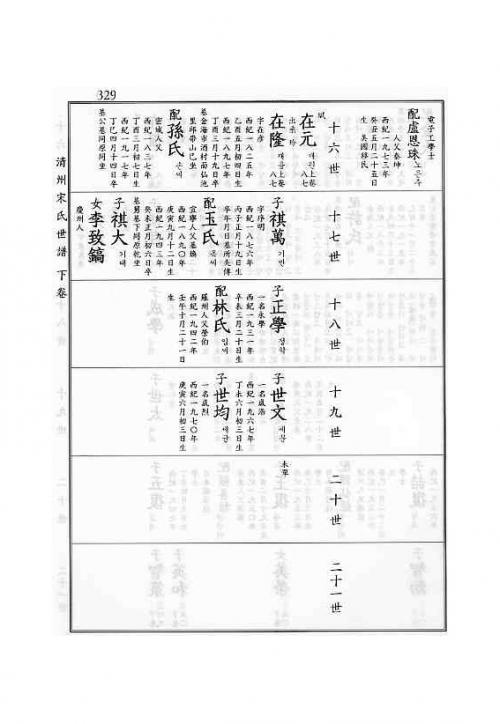 329
電子工學士
配盧恩珠 노은주
人父泰坤
西紀一九七三年
癸丑五月二十五日
生 美國移民
十六世
在元 재원上卷
出系 琦 八七
在隆 재융上卷
八七
字在彦
西紀一八二五年
乙酉五月初四日生
西紀一八九七年
丁酉三月十九日卒
墓金海市酒村面仙池
里邱帶山巳坐
配孫氏 손씨
密城人父
西紀一八三七年
丁酉三月初七日生
西紀一九一七年
丁巳四月十四日卒
墓公墓同原同坐
十七世
子祺萬 기만
字序明
西紀一八七六年
丙子正月十九日生
卒年月日墓所失傳
配玉氏 옥씨
宜寧人父基煥
西紀一八九〇年
庚寅九月十二日生
西紀一九四三年
癸未正月初六日卒
墓舅墓下同原乾坐
子祺大 기대
女李致鎬
慶州人
十八世
子正學 정학
一名永學
西紀一九三一年
辛未三月二十日生
配林氏 임씨
羅州人父榮伯
西紀一九四二年
壬午十月二十一日
生
十九世
子世文 세문
一名成浩
西紀一九六七年
丁未六月初三日生
子世均 세균
一名成烈
西紀一九七〇年
庚寅六月初三日生
二十世
未畢
二十一世
清州宋氏世譜 下卷